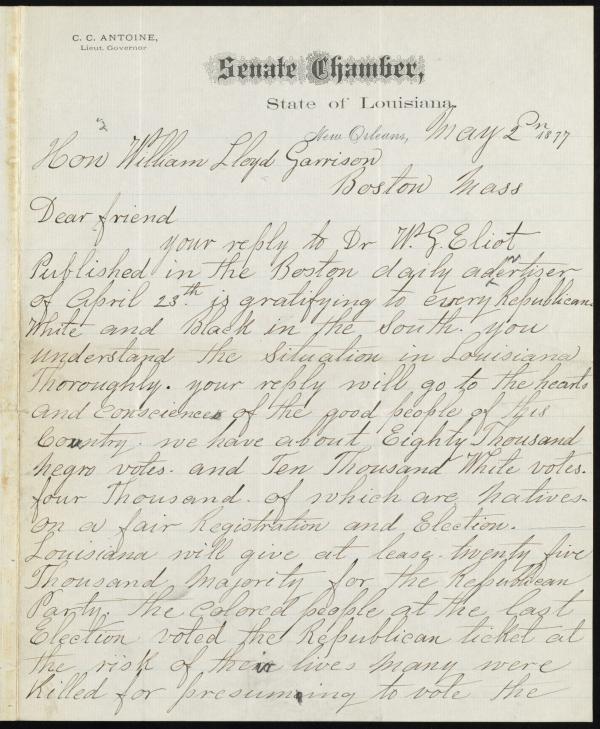 C. C. ANTOINE,
Lieut. Governor
Senate Chamber,
State of Louisiana,
New Orleans, May 2n 1877
Hon William Lloyd Garrison
Boston Mass
Dear friend
your reply to Dr W. G. Eliot
Published in the Boston daily advertiser
of April 23th is gratifying to every Republican.
White and black in the South. you
understand the Situation in Louisiana
Thoroughly. your reply will go to the hearts
and consciences of the good people of this
Country. we have about Eighty Thousand
negro votes. and Ten Thousand White votes.
four Thousand. of which are natives-
on a fair Registration and Election.
Louisiana will give at lease twenty five
Thousand Majority for the Republican
Party. the Colored people at the last
Election voted the Republican ticket at
the risk of their lives Many were
Killed for presuming to vote the